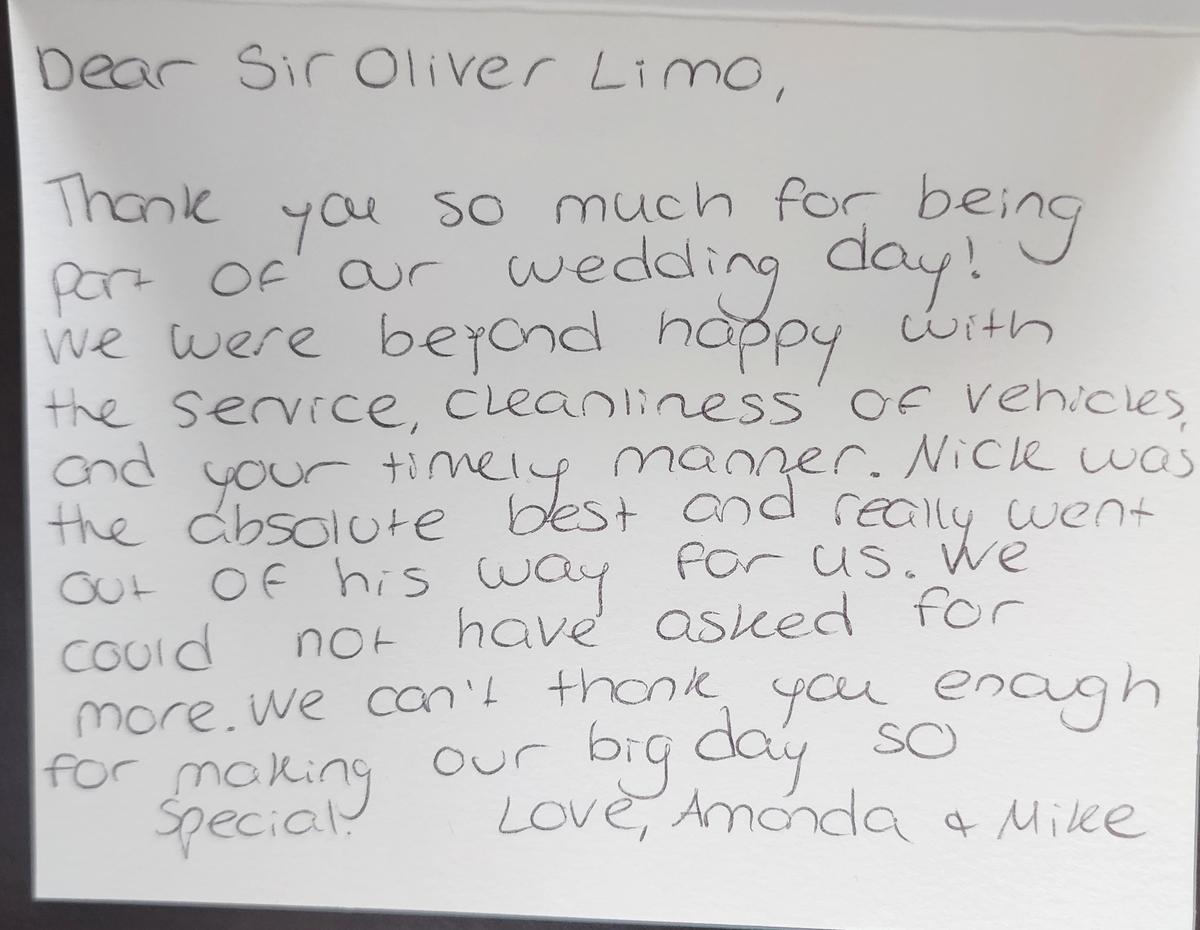 Dear Sir Oliver Limo,
Thank you so much for being
part of our wedding day!
We were beyond happy with
the service, cleanliness of vehicles,
and your timely manner. Nick was
the absolute best and really went
out of his way for us. We
could not have asked for
more. We can't thank you enough
for making our big day so
special! Love, Amanda & Mike